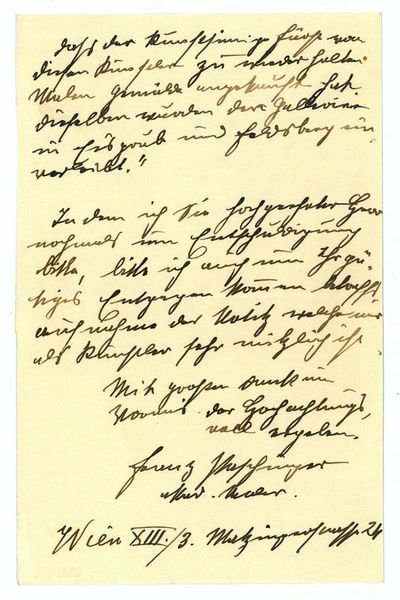 dass der kunstsinnige Fürst von
diesem Künstler zu wiederholten
Malen Gemälde angekauft hat,
dieselben wurden den Gallerien
in Eisgrub und Feldsberg ein-
verleibt."
In dem ich Sie hochgeehrter Herr
nochmals um Entschuldigung
bitte, bitte ich auch um Ihr gü-
tiges Entgegen kommen betreffs
aufnahme der Notiz welche mir
als Künstler sehr nützlich ist.
Mit großem Dank im
Voraus der Hochachtungs
voll ergeben.
Franz
Wien XIII./3.